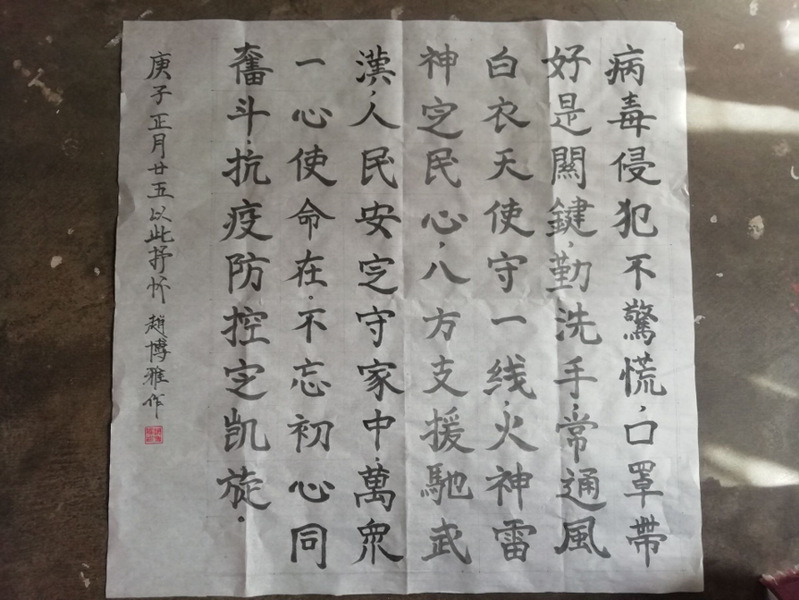 病毒侵犯不驚慌，口罩帶
好是關鍵，勤洗手，常通風
白衣天使守一线，火神雷
神定民心，八方支援馳武
漢，人民安定守家中，萬眾
一心使命在，不忘初心同
奮斗，抗疫防控定凯旋。
庚子正月廿五以此抒忻 趙博雅作